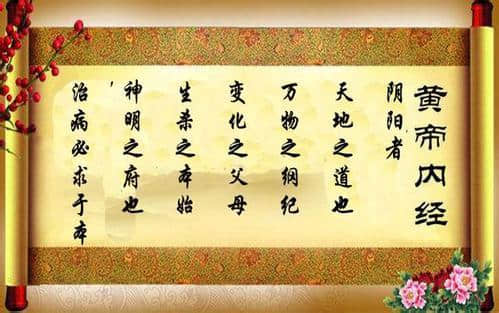 黄帝内经
阴阳者
天地之道也
万物之纲纪
变化之父母
生杀之本始
神明之府也
治病必求于本